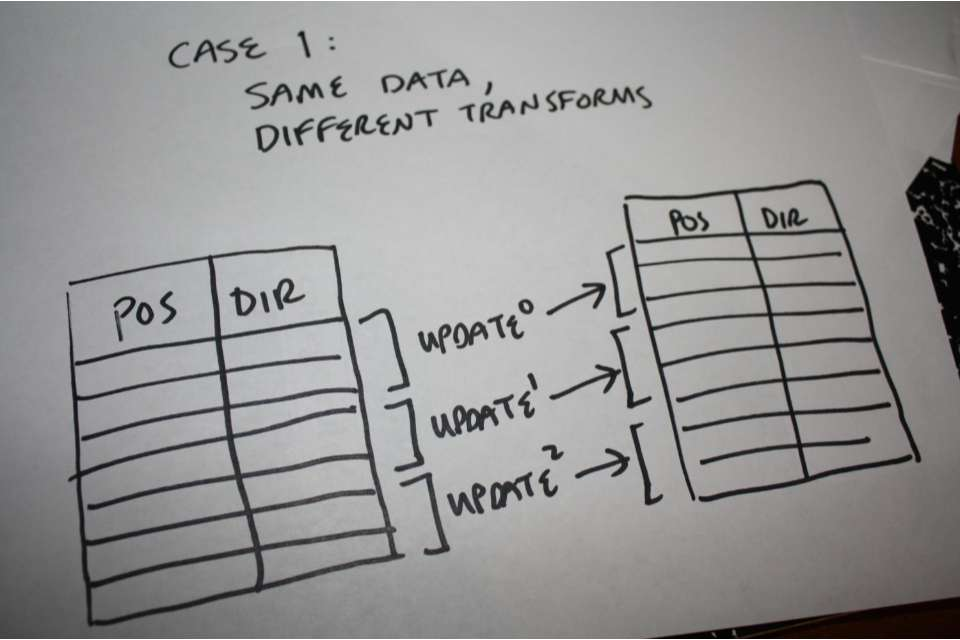 CASE 1:
SAME DATA,
DIFFERENT TRANSFORMS
POS DIR
POS DIR
UPDATE⁰
UPDATE¹
UPDATE²